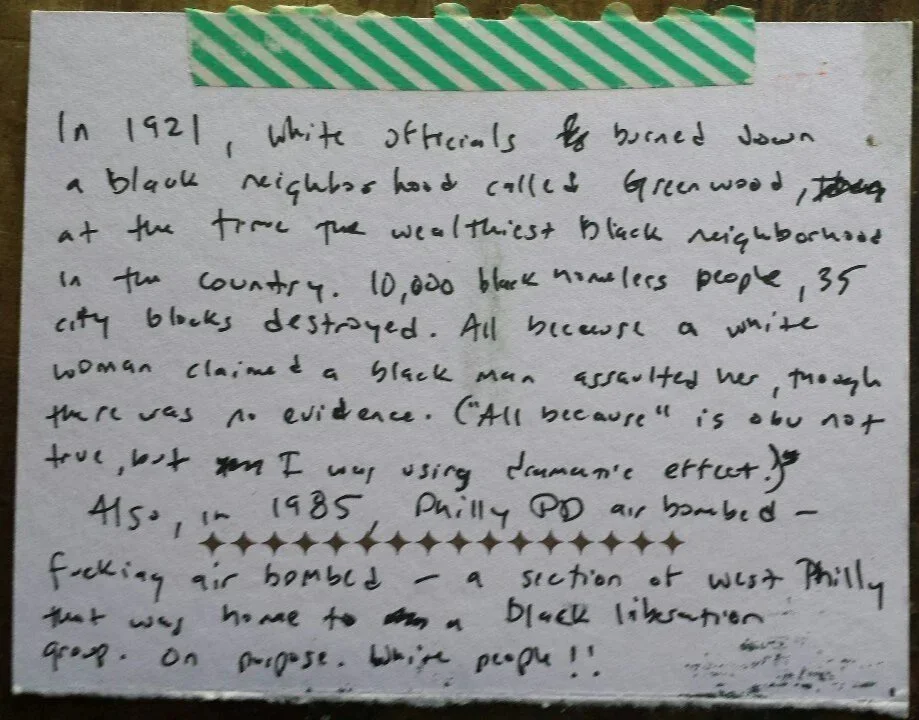 In 1921, white officials burned down
a black neighborhood called Greenwood,
at the time the wealthiest Black neighborhood
in the country. 10,000 black homeless people, 35
city blocks destroyed. All because a white
woman claimed a black man assaulted her, though
there was no evidence. ("All because" is obv not
true, but I was using dramatic effect.)
Also, in 1985, Philly PD air bombed –
fucking air bombed – a section of West Philly
that was home to a Black liberation
group. On purpose. White people!!